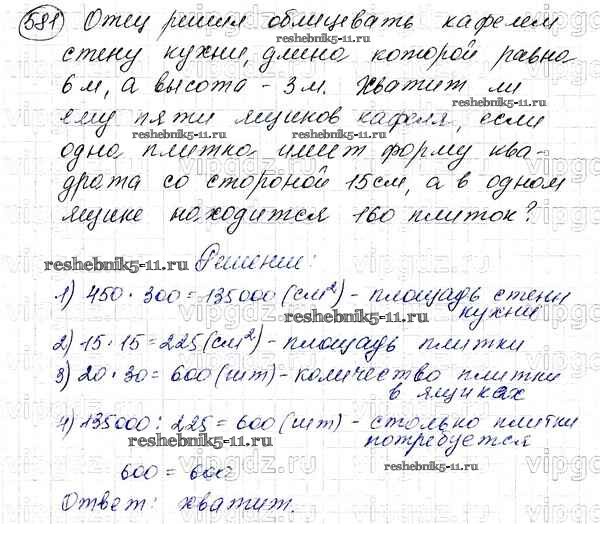 581 Отец решил облицевать кафелем
стену кухни, длина которой равна
6 м, а высота - 3 м. Хватит ли
reshebnik5-11.ru
ему пяти ящиков кафеля, если
reshebnik5-11.ru reshebnik5-11.ru
одна плитка имеет форму ква-
драта со стороной 15 см, а в одном
ящике находится 160 плиток?
reshebnik5-11.ru Решение:
1) 450 · 300 = 135000 (см²) - площадь стены
reshebnik5-11.ru кухни
2) 15 · 15 = 225 (см²) - площадь плитки
3) 20 · 30 = 600 (шт) - количество плитки
в ящиках
4) 135000 : 225 = 600 (шт) - столько плитки
reshebnik5-11.ru потребуется
600 = 600 reshebnik5-11.ru
Ответ: хватит.